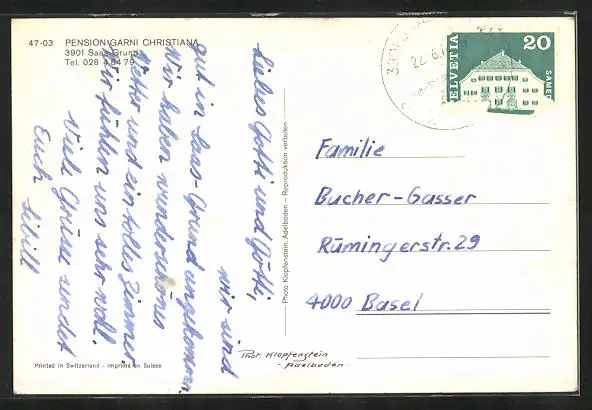 47-03 PENSION GARNI CHRISTIANA
3901 Saas-Grund
Tel. 028 4 84 79
Liebes Gotti und Götti,
wir sind
gut in Saas-Grund angekommen.
Wir haben wunderschönes
Wetter und ein tolles Zimmer.
Wir fühlen uns sehr wohl.
Viele Grüsse sendet
Euch
Photo Klopfenstein, Adelboden – Reproduktion verboten
HELVETIA 20
SAMED
22.6.
Familie
Bucher-Gasser
Rümingerstr. 29
4000 Basel
Phot. Klopfenstein
- Adelboden -
Printed in Switzerland - Imprimé en Suisse